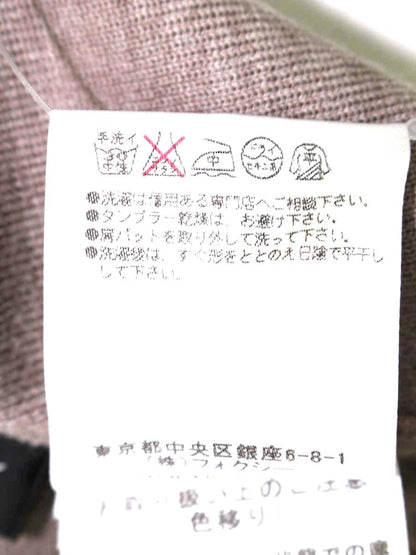 手洗イ
中性
エンソサラシ
中
ドライ
セキユ系
平
●洗濯は信用ある専門店へご相談下さい。
●タンブラー乾燥は、お避け下さい。
●肩パットを取り外して洗って下さい。
●洗濯後は、すぐ形をととのえ日陰で平干し
して下さい。
東京都中央区銀座6-8-1
(株)フォクシー
扱い上のご注意
色移り